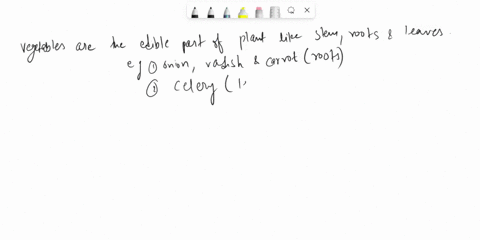 vegetables are the edible part of plant like stem, roots & leaves.
eg ① onion, radish & carrot (roots)
② celery (